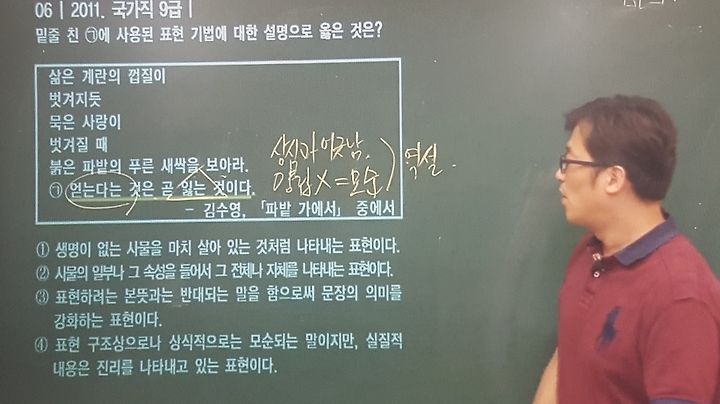 06 | 2011. 국가직 9급 |
밑줄 친 ㉠에 사용된 표현 기법에 대한 설명으로 옳은 것은?
삶은 계란의 껍질이
벗겨지듯
묵은 사랑이
벗겨질 때
붉은 파밭의 푸른 새싹을 보아라.
㉠ 얻는다는 것은 곧 잃는 것이다.
- 김수영, 「파밭 가에서」 중에서
상식과 어긋남.
양립 X = 모순
역설.
① 생명이 없는 사물을 마치 살아 있는 것처럼 나타내는 표현이다.
② 사물의 일부나 그 속성을 들어서 그 전체나 자체를 나타내는 표현이다.
③ 표현하려는 본뜻과는 반대되는 말을 함으로써 문장의 의미를
강화하는 표현이다.
④ 표현 구조상으로나 상식적으로는 모순되는 말이지만, 실질적
내용은 진리를 나타내고 있는 표현이다.